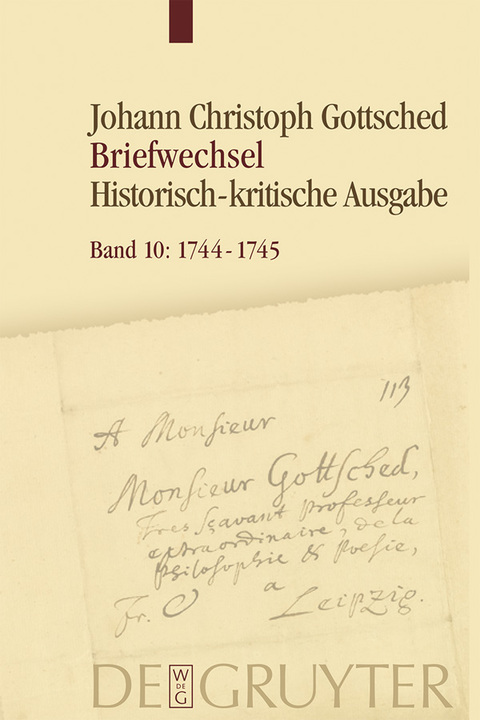 Johann Christoph Gottsched
Briefwechsel
Historisch-kritische Ausgabe
Band 10: 1744-1745
113
A Monsieur
Monsieur Gottsched,
Tres sçavant Professeur
extraordinaire, de la
Philosophie & Poesie,
a
Fr. Leipzig.
DE GRUYTER
W
DE
G